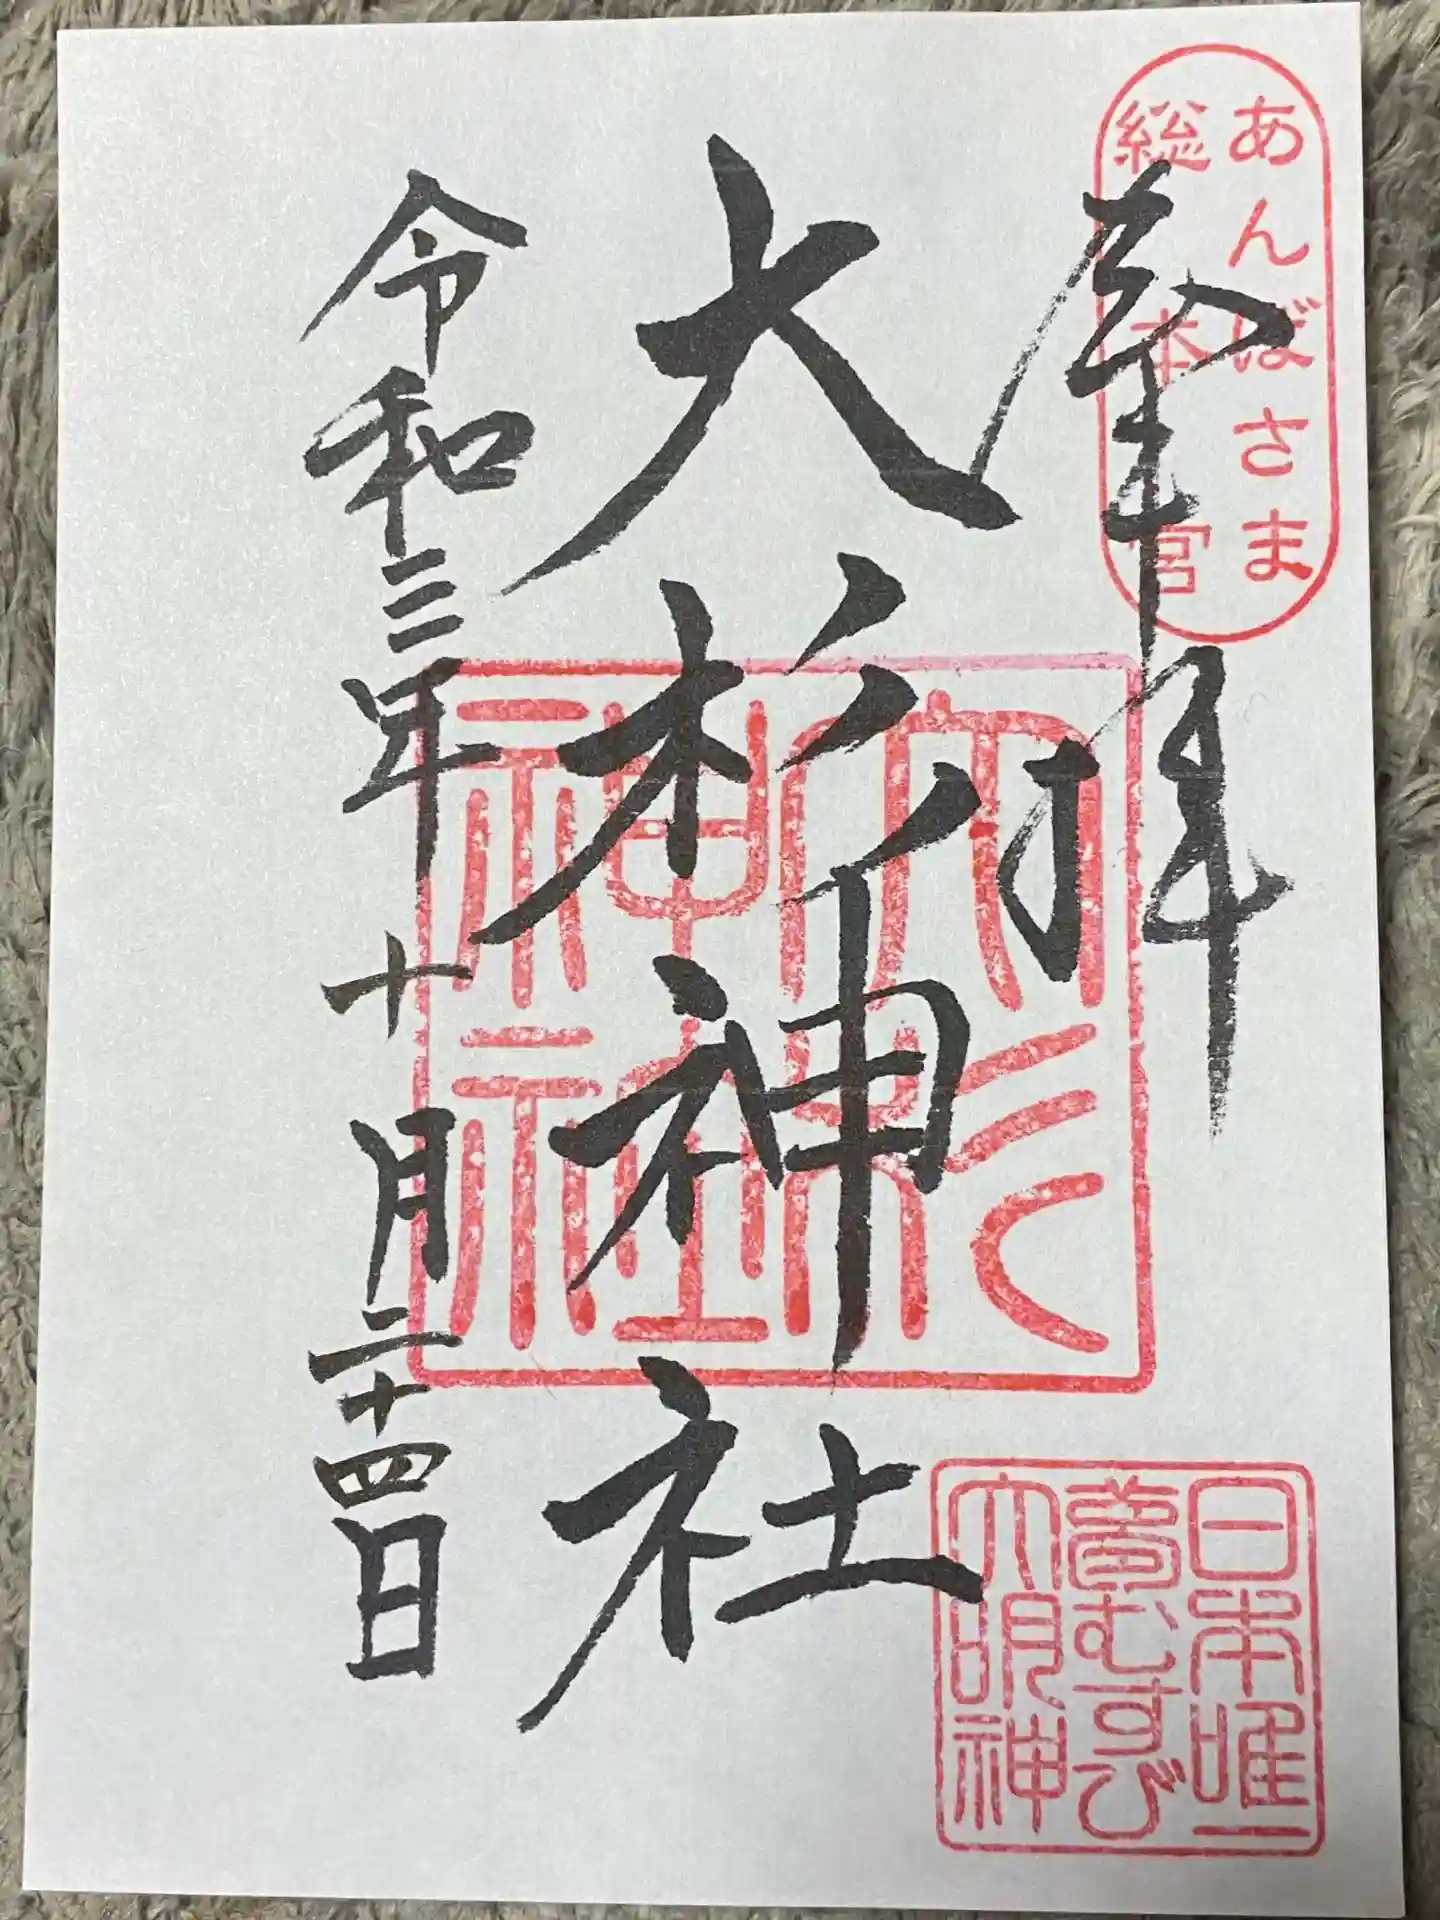 あんばさま
総本宮
奉拝
大杉神社
大杉
神社
令和三年十月二十四日
日本唯一
夢むすび
大明神